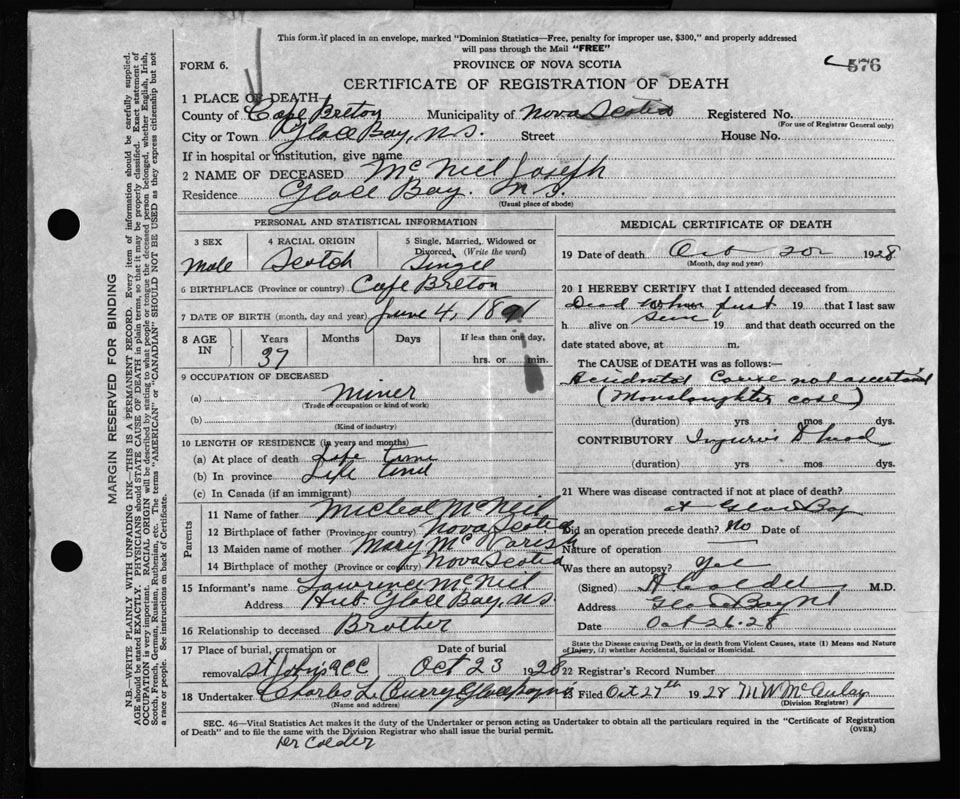 This form if placed in an envelope, marked "Dominion Statistics—Free, penalty for improper use, $300," and properly addressed
will pass through the Mail "FREE"
FORM 6.
PROVINCE OF NOVA SCOTIA
576
CERTIFICATE OF REGISTRATION OF DEATH
1 PLACE OF DEATH—
County of Cape Breton Municipality of Nova Scotia Registered No.
(For use of Registrar General only)
City or Town Glace Bay, N.S. Street House No.
If in hospital or institution, give name
2 NAME OF DECEASED McNeil Joseph
Residence Glace Bay. N.S.
(Usual place of abode)
PERSONAL AND STATISTICAL INFORMATION
3 SEX 4 RACIAL ORIGIN 5 Single, Married, Widowed or Divorced, (Write the word)
Male Scotch Single
6 BIRTHPLACE (Province or country) Cape Breton
7 DATE OF BIRTH (month, day and year) June 4, 1891
8 AGE IN Years Months Days If less than one day,
37 hrs. or min.
9 OCCUPATION OF DECEASED
(a) Miner
(Trade or occupation or kind of work)
(b)
(Kind of industry)
10 LENGTH OF RESIDENCE (in years and months)
(a) At place of death Life time
(b) In province Life time
(c) In Canada (if an immigrant)
Parents
11 Name of father Micheal McNeil
12 Birthplace of father (Province or country) Nova Scotia
13 Maiden name of mother Mary Mc
14 Birthplace of mother (Province or country) Nova Scotia
15 Informant's name Lawrence McNeil
Address Hub Glace Bay, N.S
16 Relationship to deceased Brother
17 Place of burial, cremation or removal St John's RCC Date of burial Oct 23 1928
18 Undertaker Charles L. Curry Glace Bay N.S
(Name and address)
MEDICAL CERTIFICATE OF DEATH
19 Date of death Oct 20 1928
(Month, day and year)
20 I HEREBY CERTIFY that I attended deceased from
Dead when first 19 that I last saw
h alive on seen 19 and that death occurred on the
date stated above, at m.
The CAUSE of DEATH was as follows:—
Accidental Cause not ascertained
(Manslaughter case)
(duration) yrs mos dys.
CONTRIBUTORY Injuries head
(duration) yrs mos dys.
21 Where was disease contracted if not at place of death?
at Glace Bay
Did an operation precede death? No Date of
Nature of operation
Was there an autopsy? Yes
(Signed) A Calder M.D.
Address Glace Bay NS
Date Oct 26-28
State the Disease causing Death, or in death from Violent Causes, state (1) Means and Nature
of Injury, (2) whether Accidental, Suicidal or Homicidal.
22 Registrar's Record Number
23 Filed Oct 27th 1928 M W McAulay
(Division Registrar)
SEC. 46—Vital Statistics Act makes it the duty of the Undertaker or person acting as Undertaker to obtain all the particulars required in the "Certificate of Registration
of Death" and to file the same with the Division Registrar who shall issue the burial permit.
(OVER)
Dr Calder
MARGIN RESERVED FOR BINDING
N.B.—WRITE PLAINLY WITH UNFADING INK—THIS IS A PERMANENT RECORD. Every item of information should be carefully supplied.
AGE should be stated EXACTLY. PHYSICIANS should STATE CAUSE OF DEATH in plain terms, so that it may be properly classified. Exact statement of
OCCUPATION is very important. RACIAL ORIGIN will be described by stating to what people or tongue the deceased person belonged, whether English, Irish,
Scotch, French, German, Russian, Ruthenian, etc. The terms "AMERICAN" or "CANADIAN" SHOULD NOT BE USED as they express citizenship but not
a race or people. See instructions on back of Certificate.